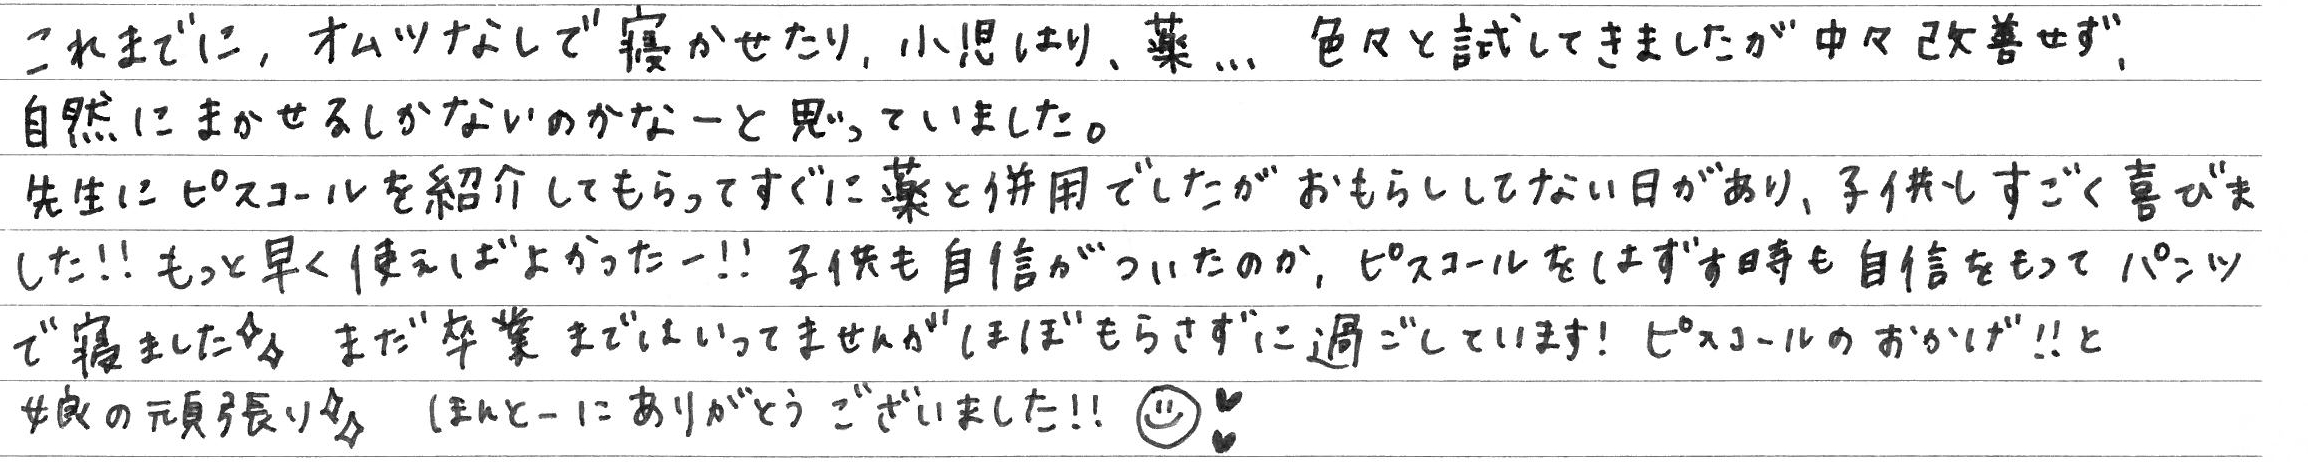 これまでに, オムツなしで寝かせたり, 小児はり、薬… 色々と試してきましたが中々改善せず,
自然にまかせるしかないのかなーと思っていました。
先生にピスコールを紹介してもらってすぐに薬と併用でしたがおもらししてない日があり、子供もすごく喜びま
した!! もっと早く使えばよかったー!! 子供も自信がついたのか, ピスコールをはずす時も自信をもってパンツ
で寝ました✨ まだ卒業まではいってませんがほぼもらさずに過ごしています! ピスコールのおかげ!!と
娘の頑張り✨ ほんとーにありがとうございました!! ☺♥♥